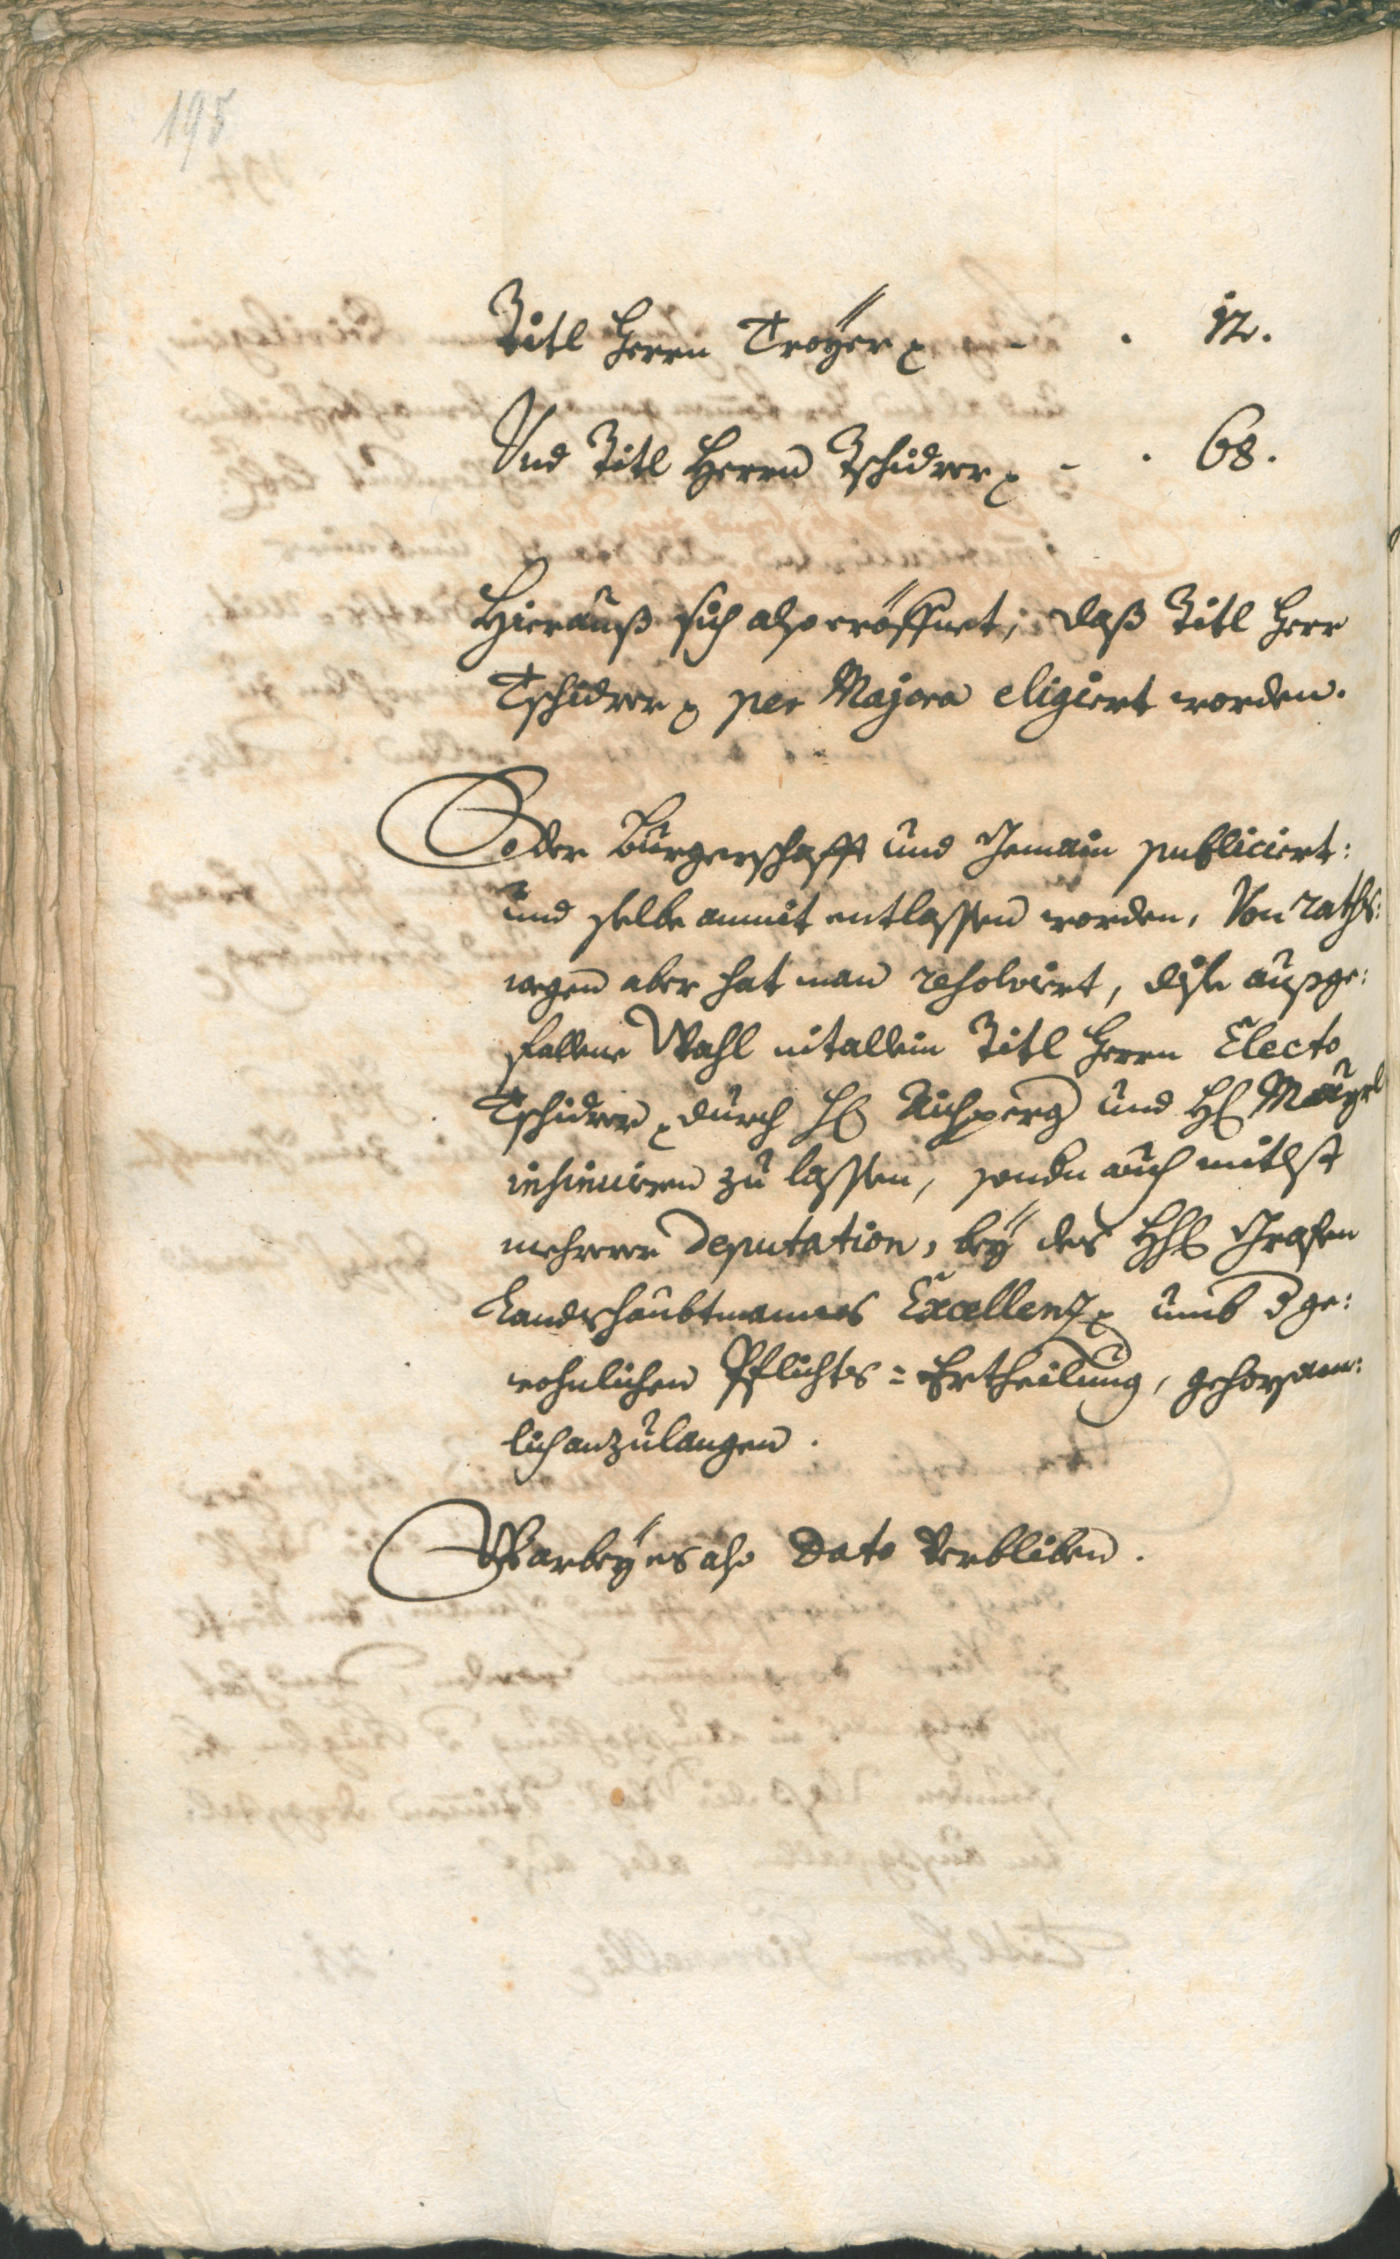 195
Titl Herrn Troÿer - . 12.
Und Titl Herrn Tschidrer - . 68.
Hierauß sich also eröffnet, daß Titl Herr
Tschidrer per Majora eligiert worden.
So der Burgerschafft und Gemain publiciert:
und selbe anmit entlassen worden, Von raths:
wegen aber hat man resolviert, dise außge:
fallene Wahl nit allein Titl Herrn Electo
Tschidrer durch H und H Mayrl
insinuieren zu lassen, sondern auch mitlst
mehrerer Deputation, beÿ des Grafen
Landtshaubtmannes Excellenz umb d ge:
wohnlichen Pflichts=Ertheilung, gehorsam:
lich anzulangen.
Warbeÿ es also Dato Verbliben.